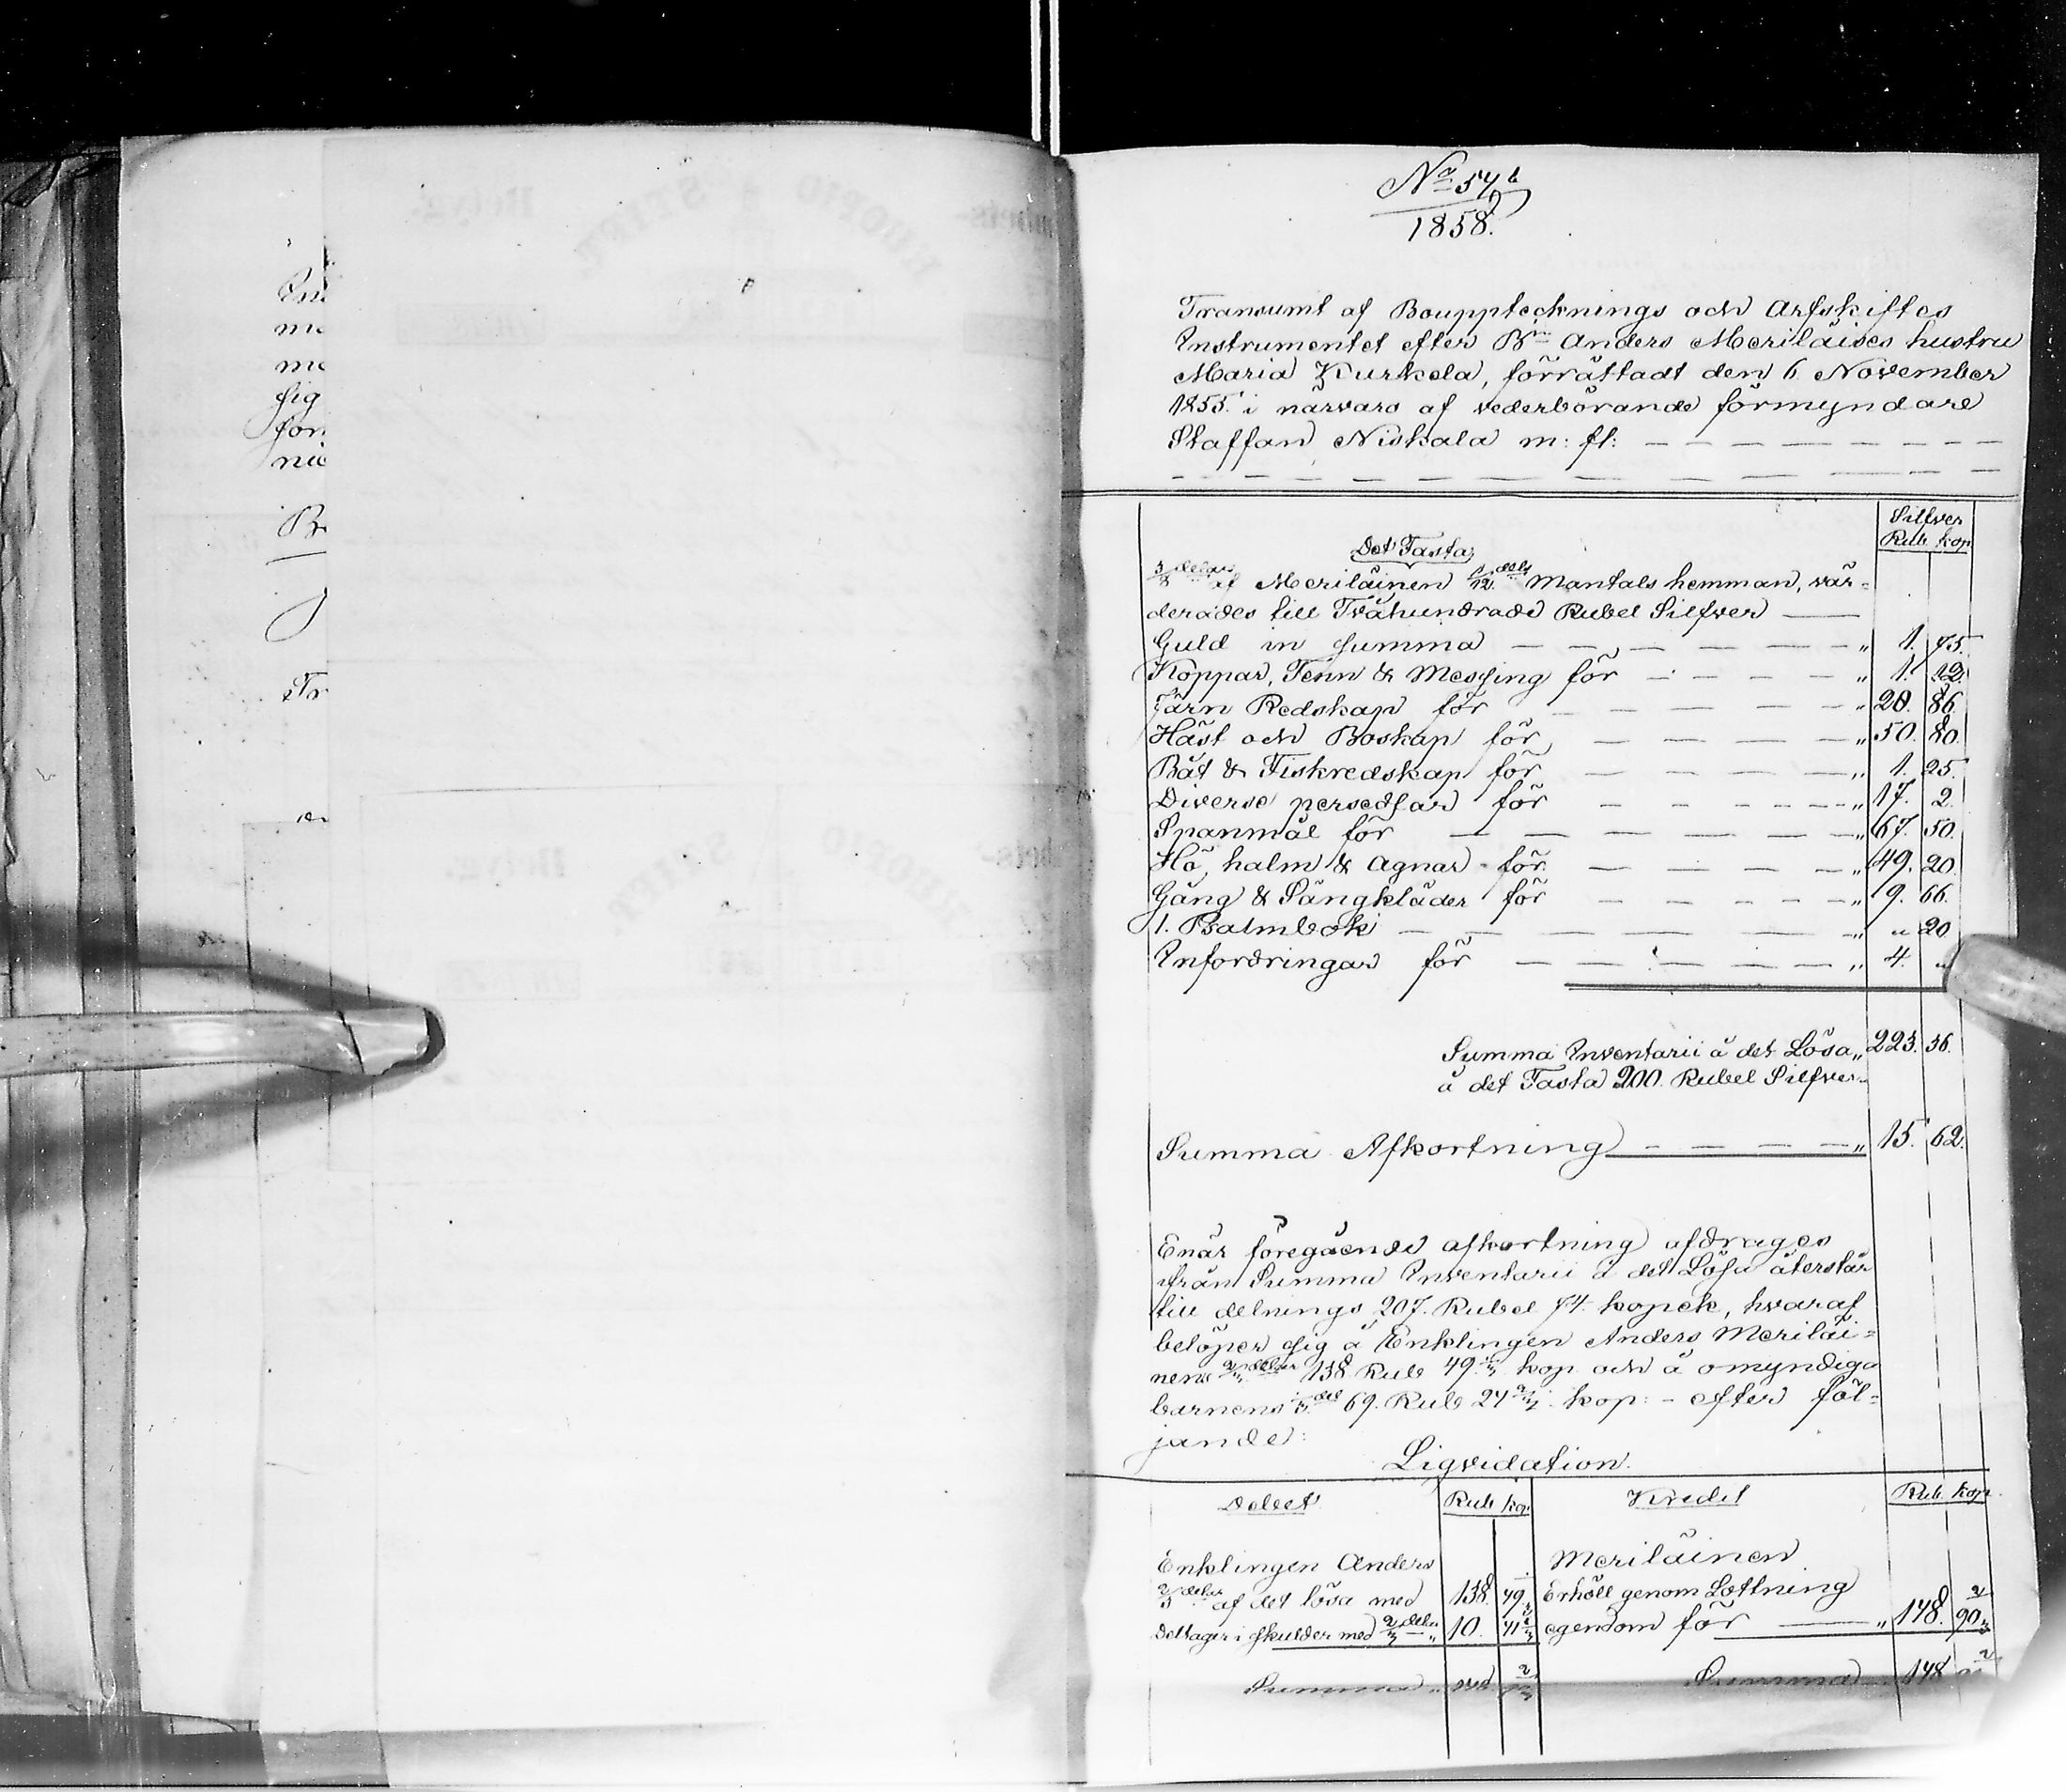 No 54 b
1858.
Transumt af Bouppteknings och Arfskiftes
Instrumentet efter Bn Anders Meriläises hustru
Maria Kurkela, förrättadt den 6 November
1855 i närvaro af vederbörande förmyndare
Staffan Niskala m: fl: — — — — — — — —
Silfver
Rub. kop
Det Fasta
3/8 delar af Meriläinen 1/12 dels Mantals hemman, vär=
derades till Tvåhundrade Rubel Silfver —
Guld in summa — — — — — — „ 1. 75.
Koppar, Tenn & Messing för — — — — „ 1. 12.
Järn Redskap för — — — — — „ 20. 86.
Häst och Boskap för — — — — „ 50. 80.
Båt & Fiskredskap för — — — — „ 1. 25.
Diverse persedlar för — — — — — „ 17. 2.
Spanmål för — — — — — — „ 67. 50.
Hö, halm & Agnar för — — — — „ 49. 20.
Gång & Sängkläder för — — — — — „ 9. 66.
1. Psalmbok — — — — — — „ „ 20
Infordringar för — — — — — — „ 4. „
Summa Inventarii å det Lösa „ 223. 36.
å det Fasta 200. Rubel Silfver
Summa Afkortning — — — — „ 15. 62.
Enär föregående afkortning afdrages
ifrån Summa Inventarii å det Lösa återstår
till delnings 207. Rubel 74. kopek, hvaraf
belöper sig å Enklingen Anders Meriläi=
nens 2/3 delar 138 Rub 49 1/3 kop och å omyndiga
barnens 1/3 del 69. Rub 24 2/3 kop: - efter föl=
jande:
Liqvidation.
Debet Rub kop. Kredit Rub. kop.
Enklingen Anders Meriläinen
2/3 delar af det lösa med 138. 49 1/3 Erhöll genom Lottning
Deltager i skulder med 2/3 delar „ 10. 41 1/3 egendom för — „ 148. 90 2/3
Summa „ 148 Summa 148
Eni
me
me
sig
för
nic
Br
Tr